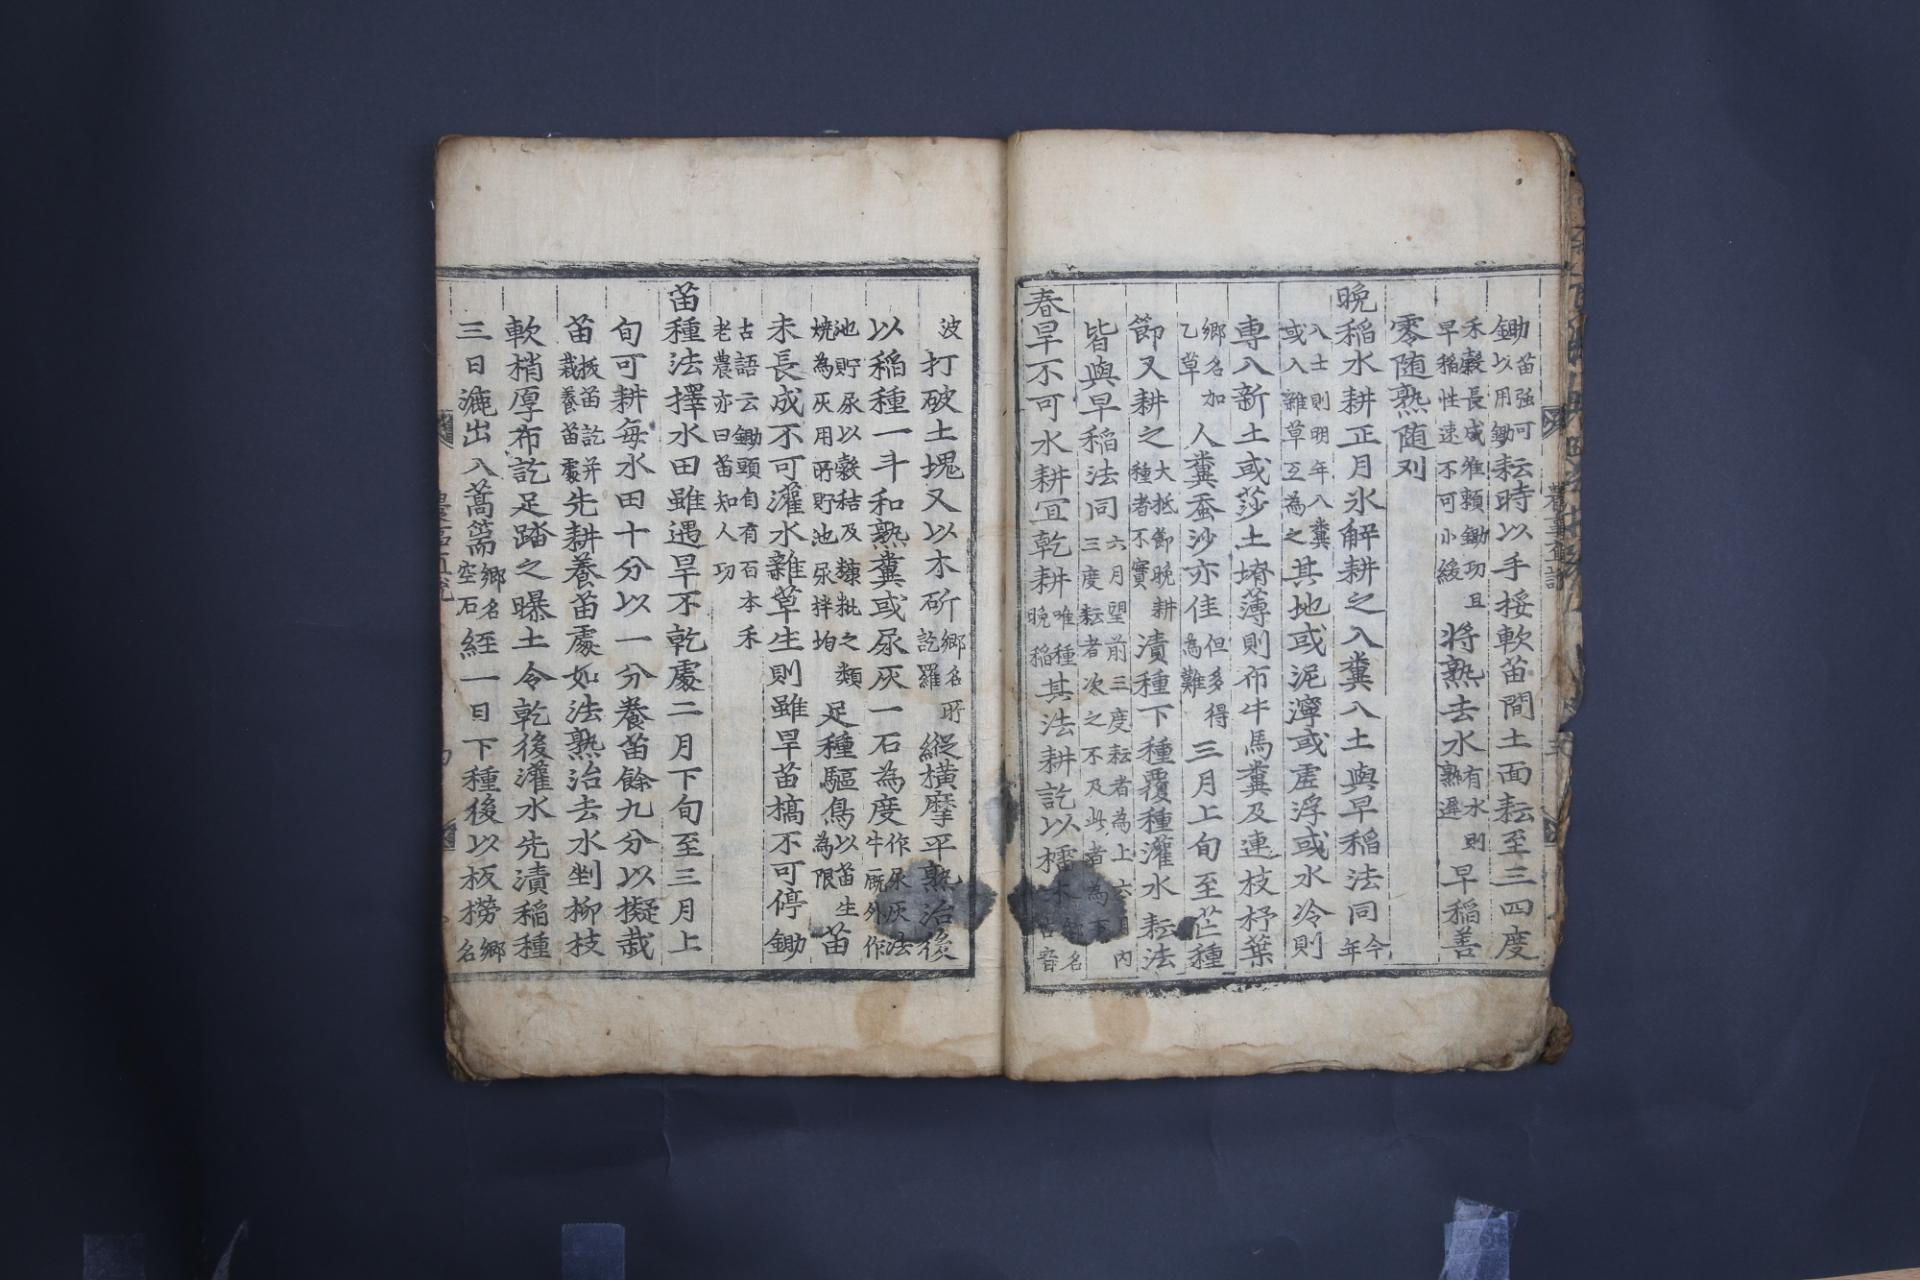 鋤苗強可以用鋤耘時以手挼軟苗間土面耘至三四度
禾穀長成唯頼鋤功且早稻性速不可小緩將熟去水有水則熟遲早稻善
零随熟随刈
晩稻水耕正月氷解耕之入糞入土與早稻法同今年
入土則明年入糞或入雜草互為之其地或泥濘或虚浮或水冷則
専入新土或莎土塉薄則布牛馬糞及連枝杼葉
鄉名加乙草人糞蚕沙亦佳但多得為難三月上旬至芒種
節又耕之大抵節晩耕種者不實漬種下種覆種灌水耘法
皆與早稻法同六月望前三度耘者為上六月内三度耘者次之不及此者為下
春旱不可水耕冝乾耕唯種晩稻其法耕訖以檑木鄉名古音
波打破土塊又以木斫鄉名所訖羅縱橫摩平熟治後
以稻種一斗和熟糞或尿灰一石為度作尿灰法牛廐外作
池貯尿以穀秸及糠粃之類燒為灰用所貯池尿拌均足種驅鳥以苗生為限苗
未長成不可灌水雜草生則雖旱苗槁不可停鋤
古語云鋤頭自有百本禾老農亦曰苗知人功
苗種法擇水田雖遇旱不乾處二月下旬至三月上
旬可耕每水田十分以一分養苗餘九分以擬栽
苗拔苗訖并栽養苗處先耕養苗處如法熟治去水剉柳枝
軟梢厚布訖足踏之曝土令乾後灌水先漬稻種
三日漉出入蒿篅鄉名空石經一日下種後以板撈鄉名